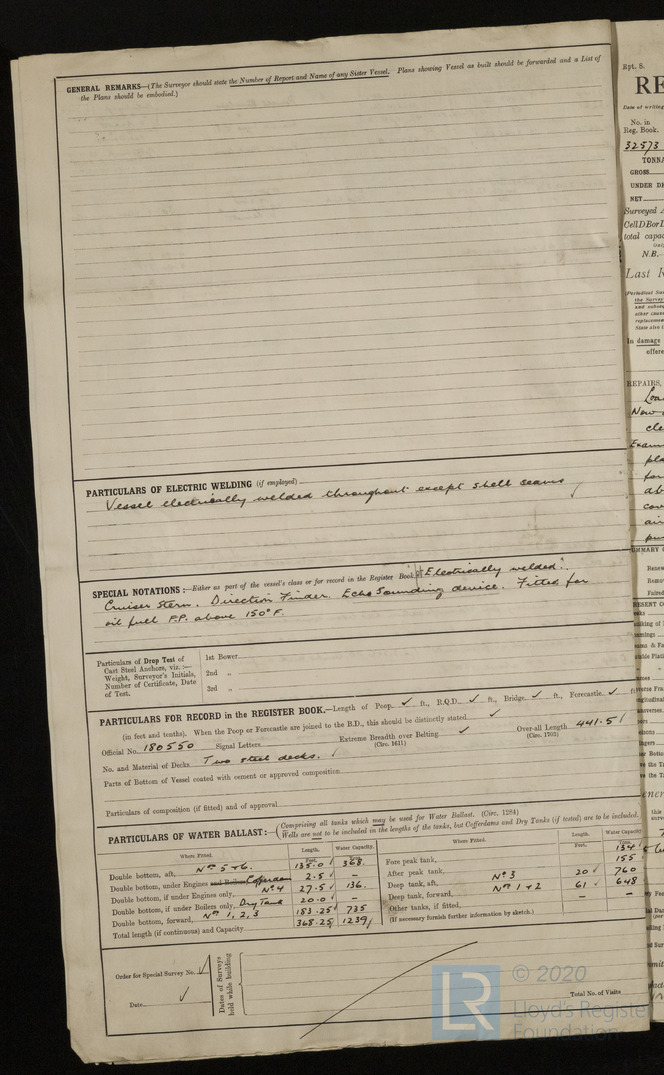 GENERAL REMARKS—(The Surveyor should state the Number of Report and Name of any Sister Vessel. Plans showing Vessel as built should be forwarded and a List of
the Plans should be embodied.)
PARTICULARS OF ELECTRIC WELDING (if employed)
Vessel electrically welded throughout except shell seams
SPECIAL NOTATIONS:—Either as part of the vessel's class or for record in the Register Book. "Electrically welded".
Cruiser stern. Direction Finder. Echo Sounding device. Fitted for
oil fuel F.P. above 150°F.
Particulars of Drop Test of
Cast Steel Anchors, viz.:—
Weight, Surveyor's Initials,
Number of Certificate, Date
of Test.
1st Bower
2nd „
3rd „
PARTICULARS FOR RECORD in the REGISTER BOOK.—Length of Poop ✓ ft., R.Q.D. ✓ ft., Bridge ✓ ft., Forecastle ✓ ft.
(in feet and tenths). When the Poop or Forecastle are joined to the B.D., this should be distinctly stated ✓
Official No. 180550 Signal Letters Extreme Breadth over Belting ✓ Over-all Length 441.5
(Circ. 1611) (Circ. 1703)
No. and Material of Decks Two steel decks.
Parts of Bottom of Vessel coated with cement or approved composition
Particulars of composition (if fitted) and of approval
PARTICULARS OF WATER BALLAST:—(Comprising all tanks which may be used for Water Ballast. (Circ. 1284)
Wells are not to be included in the lengths of the tanks, but Cofferdams and Dry Tanks (if tested) are to be included.
Where Fitted. Length. Water Capacity.
Feet. Tons.
Double bottom, aft, Nos 5 & 6. 135.0 368.
Double bottom, under Engines and Boilers Cofferdam 2.5 –
Double bottom, if under Engines only, No 4 27.5 136.
Double bottom, if under Boilers only, Dry Tank 20.0 –
Double bottom, forward, Nos 1, 2, 3 183.25 735
Total length (if continuous) and Capacity 368.25 1239
Where Fitted. Length. Water Capacity
Feet. Tons.
Fore peak tank, 134
After peak tank, 155
Deep tank, aft, No 3 20 760
Deep tank, forward, Nos 1 & 2 61 648
Other tanks, if fitted, – –
(If necessary furnish further information by sketch.)
Order for Special Survey No. ✓
Date ✓
Dates of Surveys
held while building
Total No. of Visits
LR
© 2020
Lloyd's Register
Foundation
Rpt. 8.
RE
Date of writing
No. in
Reg. Book.
32573
TONNA
GROSS
UNDER DE
NET
Surveyed
CellDBor
total capac
N.B.
Last R
(Periodical Su
the Survey
other cause
replacemen
State also
In damage
offere
REPAIRS,
Loa
Now
cle
Exam
pla
for
ab
cov
air
Renew
Remo